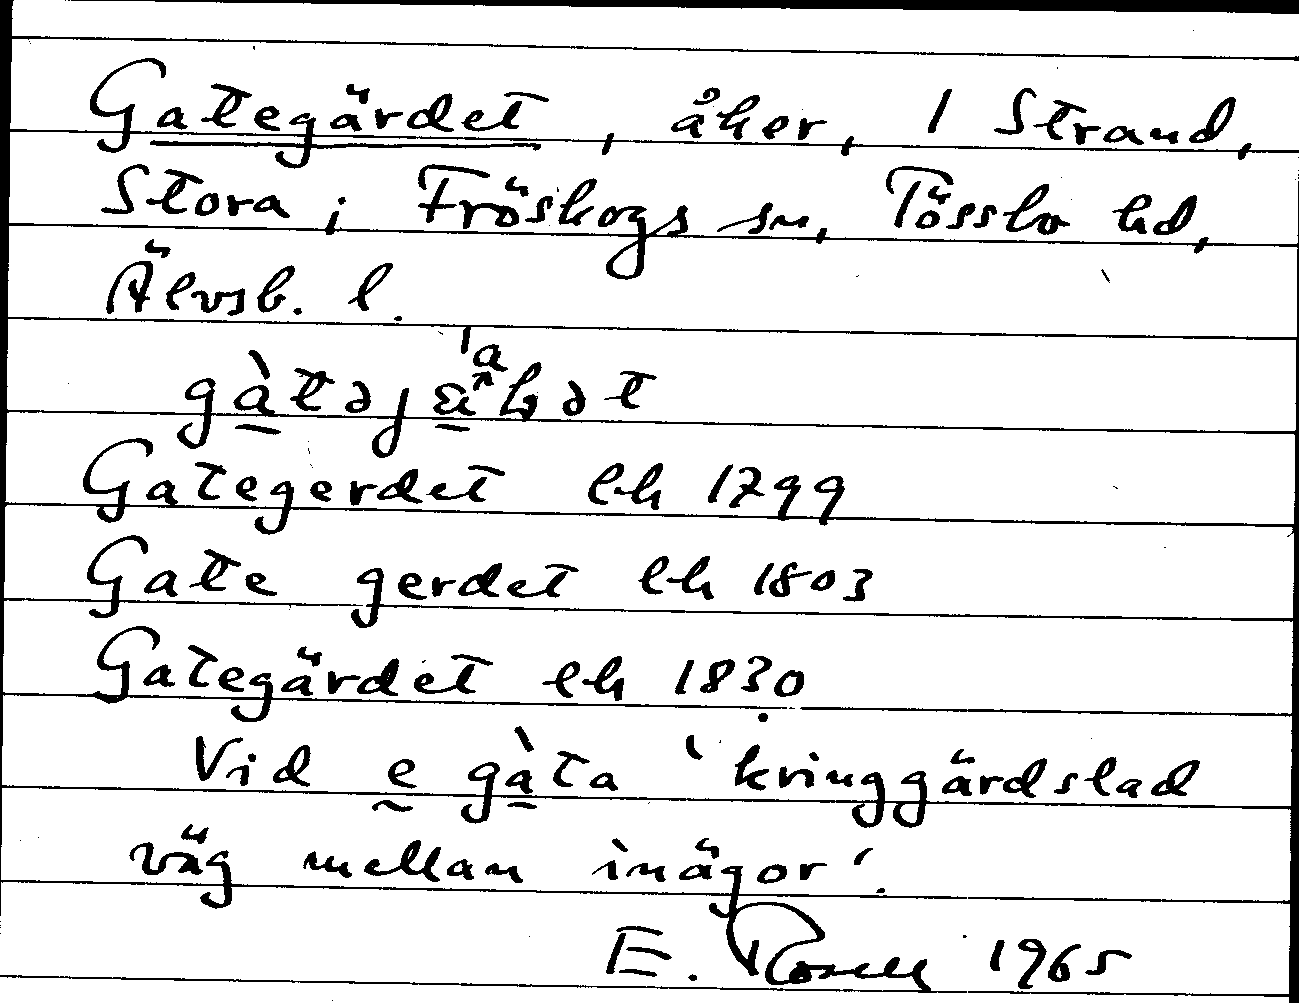 Gategärdet, åker, 1 Strand,
Stora i Fröskogs sn, Tössbo hd,
Älvsb. l.
Gategerdet lh 1799
Gate gerdet lh 1803
Gategärdet lh 1830
Vid e gàta 'kringgärdslad
väg mellan inägor'.
E. Rosell 1965